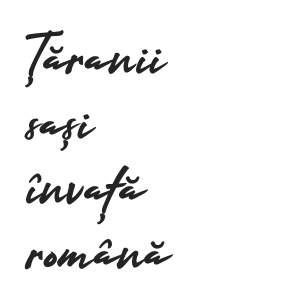 Țăranii
sași
învață
română